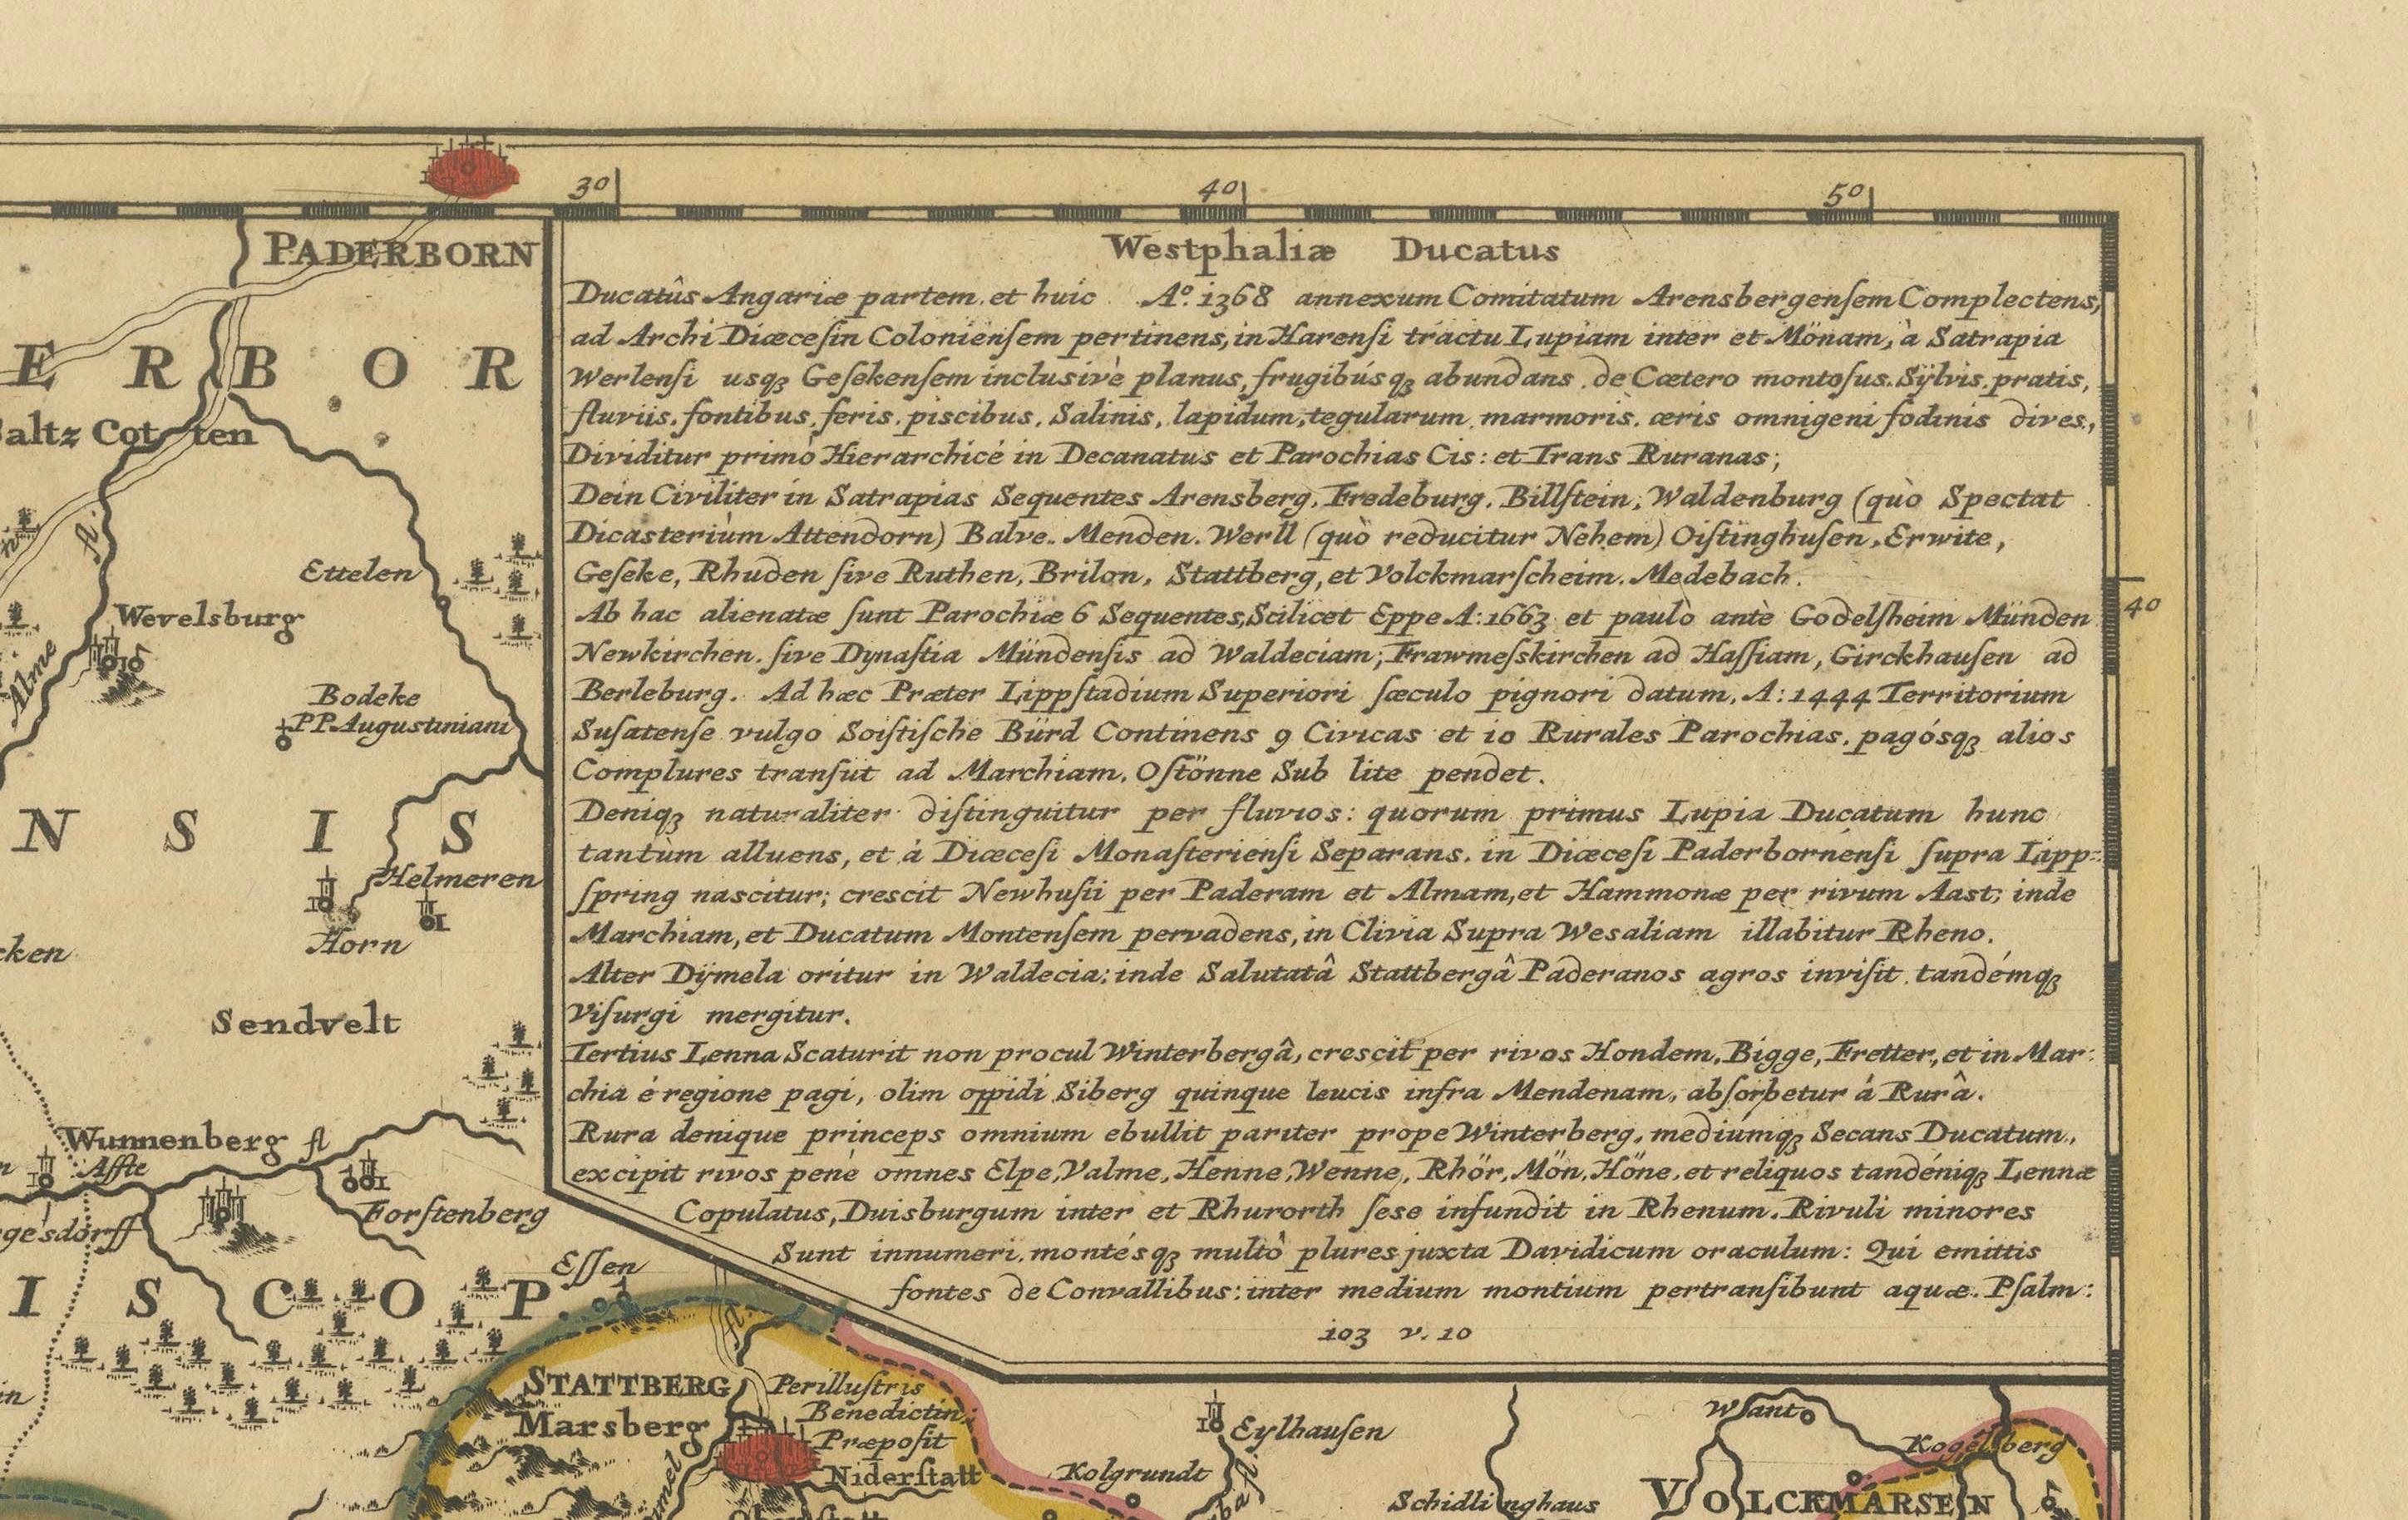 30
40
50
PADERBORN
Westphaliæ Ducatus
Ducatûs Angariæ partem, et huic Aº. 1368 annexum Comitatum Arensbergenſem Complectens,
ad Archi Diœceſin Colonienſem pertinens, in Harenſi tractu Lupiam inter et Mönam, à Satrapia
Werlenſi usqꝫ Geſekenſem incluſivè planus, frugibúsqꝫ abundans. de Cætero montoſus. Sÿlvis. pratis,
fluviis. fontibus. feris. piscibus. Salinis. lapidum, tegularum. marmoris. æris omnigeni fodinis dives.,
Dividitur primò Hierarchicé in Decanatus et Parochias Cis: et Trans Ruranas;
Dein Civiliter in Satrapias Sequentes Arensberg. Fredeburg. Billſtein, Waldenburg (quò Spectat
Dicasterium Attendorn) Balve. Menden. Werll (quò reducitur Nehem) Oiſtinghuſen, Erwite,
Geſeke, Rhuden ſive Ruthen, Brilon, Stattberg, et Volckmarſcheim. Medebach.
Ab hac alienatæ ſunt Parochiæ 6 Sequentes, Scilicet Eppe A: 1663 et paulò antè Godelſheim Münden
Newkirchen. ſive Dynaſtia Mündenſis ad Waldeciam; Frawmeſskirchen ad Haſſiam, Girckhauſen ad
Berleburg. Ad hæc Præter Lippſtadium Superiori ſæculo pignori datum, A: 1444 Territorium
Suſatenſe vulgo Soiſtiſche Bürd Continens 9 Civicas et 10 Rurales Parochias, pagósqꝫ alios
Complures tranſiit ad Marchiam. Oſtönne Sub lite pendet.
Deniqꝫ naturaliter diſtinguitur per fluvios: quorum primus Lupia Ducatum hunc
tantùm alluens, et à Diœceſi Monaſterienſi Separans. in Diœceſi Paderbornénſi ſupra Lipp=
ſpring nascitur; crescit Newhuſii per Paderam et Almam, et Hammonæ per rivum Aast; inde
Marchiam, et Ducatum Montenſem pervadens, in Clivia Supra Wesaliam illabitur Rheno.
Alter Dÿmela oritur in Waldecia: inde Salutatâ Stattbergâ Paderanos agros inviſit. tandémqꝫ
Viſurgi mergitur.
Tertius Lenna Scaturit non procul Winterbergâ, crescit per rivos Hondem, Bigge, Fretter, et in Mar:
chia é regione pagi, olim oppidi Siberg quinque leucis infra Mendenam, abſorbetur à Rurâ.
Rura denique princeps omnium ebullit pariter prope Winterberg, mediumqꝫ Secans Ducatum,
excipit rivos pené omnes Elpe, Valme, Henne, Wenne, Rhör, Mön, Höne, et reliquos tandéniqꝫ Lennæ
Copulatus, Duisburgum inter et Rhurorth ſese infundit in Rhenum. Rivuli minores
Sunt innumeri, montésqꝫ multò plures juxta Davidicum oraculum: Qui emittis
fontes de Convallibus: inter medium montium pertranſibunt aquæ. Pſalm:
103 v. 10
40
E R B O R
Saltz Cotten
fl.
Ettelen
Wevelsburg
Alme
Bodeke
PP. Augustiniani
N S I S
Helmeren
Horn
cken
Sendvelt
Wunnenberg fl
Affte
Forſtenberg
gesdorff
Eſſen
I S C O P.
fl.
STATTBERG
Marsberg
Perilluſtris
Benedictin:
Præpoſit
Niderſtatt
Eylhauſen
Kolgrundt
Schidlinghaus
Wſant
Kogelsberg
VOLCKMARSEN